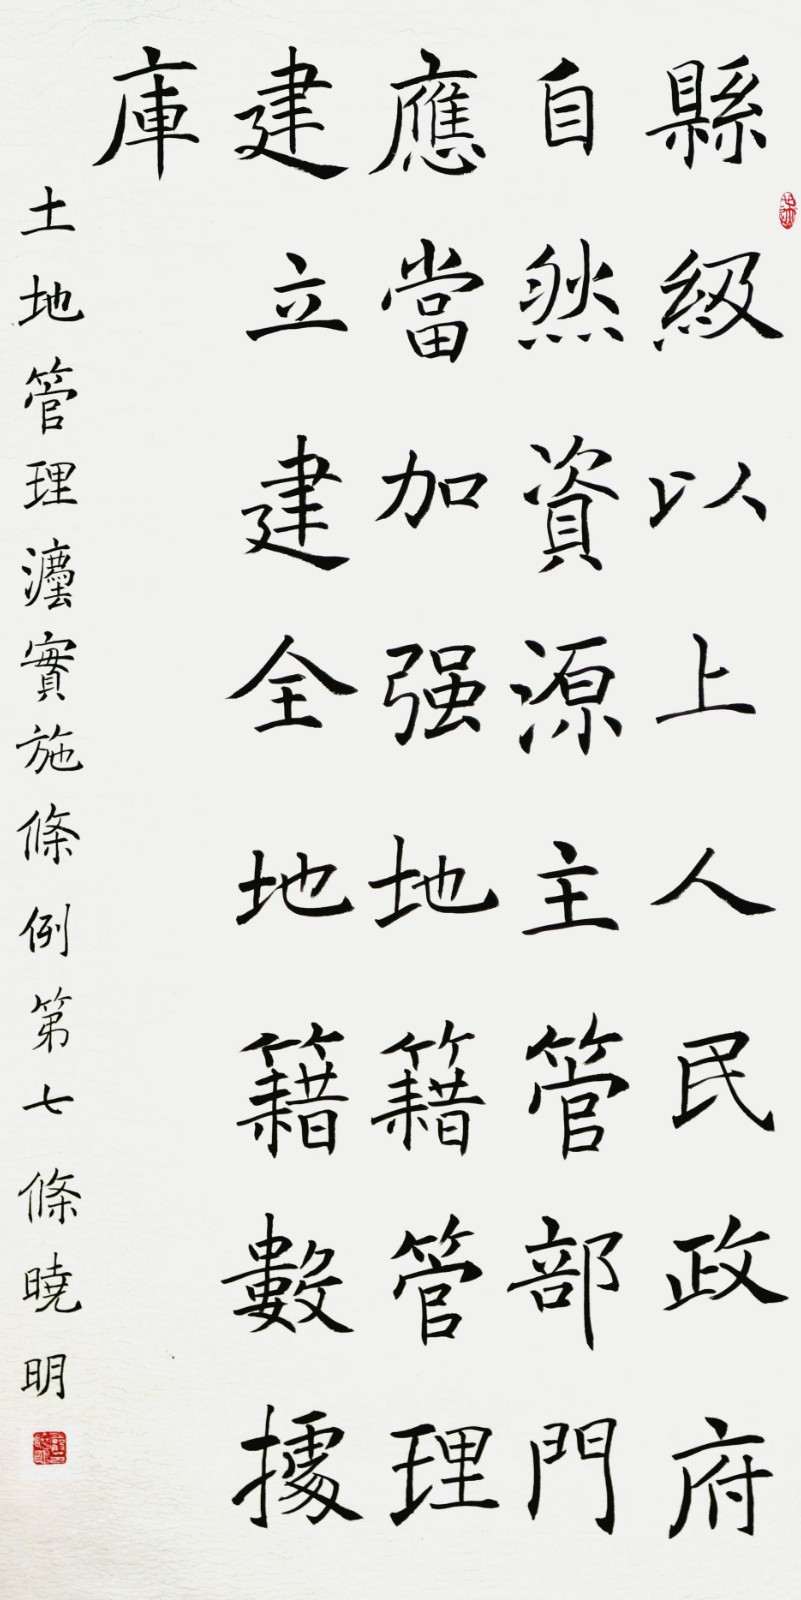 縣級以上人民政府
自然資源主管部門
應當加强地籍管理
建立建全地籍數據
庫
土地管理灋實施條例第七條曉明